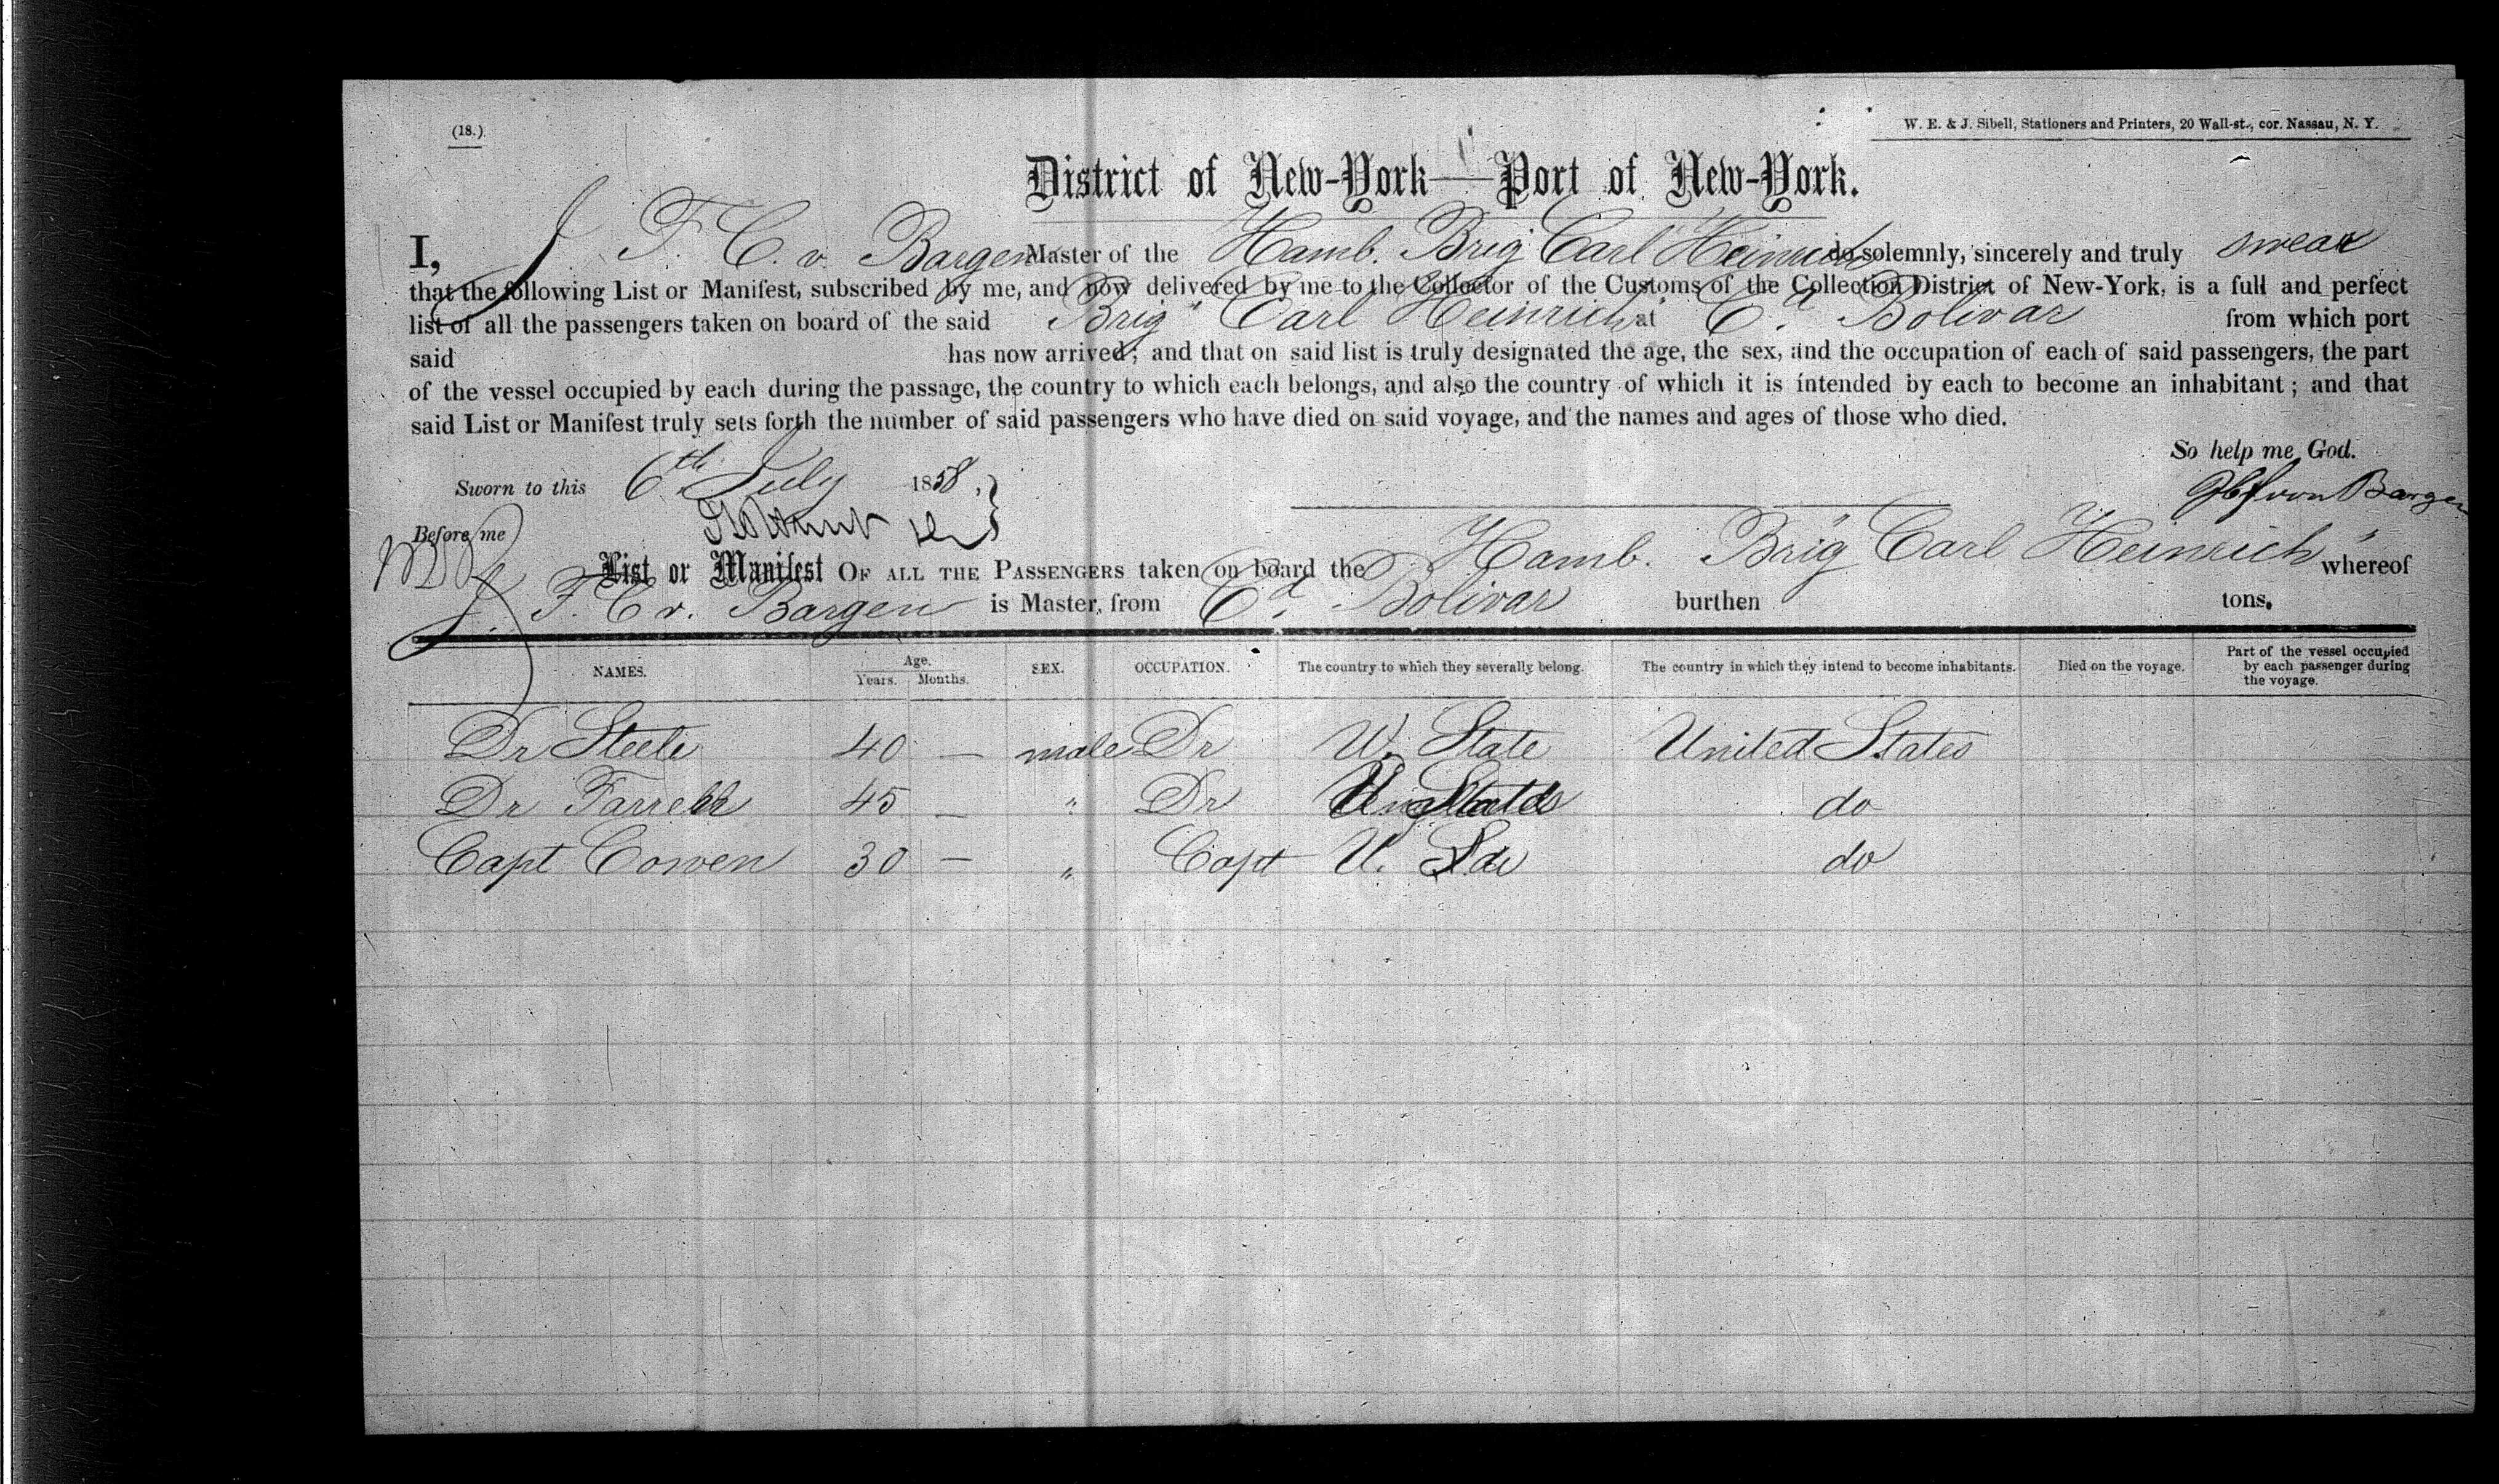 (18.)
W. E. & J. Sibell, Stationers and Printers, 20 Wall-st., cor. Nassau, N. Y.
District of New-York—Port of New-York.
I, J. F. C. v. Bargen Master of the Hamb. Brig "Carl Heinrich" do solemnly, sincerely and truly swear
that the following List or Manifest, subscribed by me, and now delivered by me to the Collector of the Customs of the Collection District of New-York, is a full and perfect
list of all the passengers taken on board of the said Brig "Carl Heinrich" at Cd. Bolivar from which port
said has now arrived; and that on said list is truly designated the age, the sex, and the occupation of each of said passengers, the part
of the vessel occupied by each during the passage, the country to which each belongs, and also the country of which it is intended by each to become an inhabitant; and that
said List or Manifest truly sets forth the number of said passengers who have died on said voyage, and the names and ages of those who died.
So help me God.
Sworn to this 6th July 1858,
von Bargen
Before me
List or Manifest OF ALL THE PASSENGERS taken on board the Hamb. Brig "Carl Heinrich" whereof
J. F. C. v. Bargen is Master, from Cd. Bolivar burthen tons.
NAMES. Age. Years. Months. SEX. OCCUPATION. The country to which they severally belong. The country in which they intend to become inhabitants. Died on the voyage. Part of the vessel occupied by each passenger during the voyage.
Dr Steele 40 — male Dr U. State United States
Dr Farrell 45 — " Dr do
Capt Cowen 30 — " Capt U. do